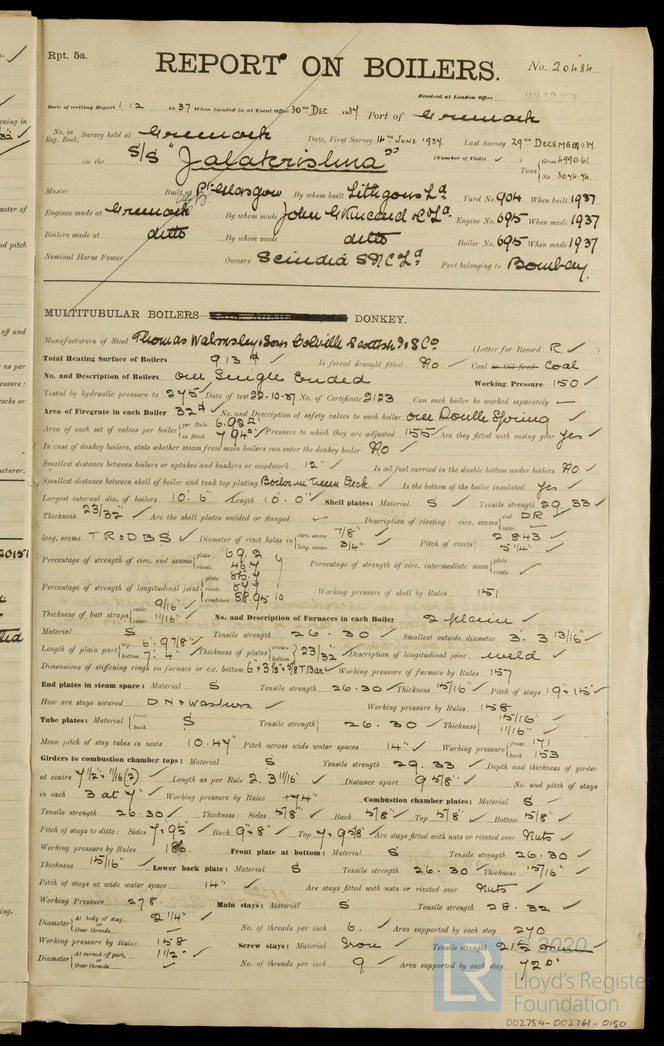 Rpt. 5a.
REPORT ON BOILERS.
No. 20484
Received at London Office
Date of writing Report 1 12 1937 When handed in at Local Office 30TH DEC. 1937 Port of Greenock
No. in Reg. Book. Survey held at Greenock Date, First Survey 14TH JUNE 1937 Last Survey 29TH DECEMBER 1937
on the S/S "Jalakrishna" (Number of Visits ) Tons Gross 4990.61 Net 3044.74
Master Built at Pt Glasgow By whom built Lithgows Ld Yard No. 904 When built 1937
Engines made at Greenock By whom made John G Kincaid & Co Ld Engine No. 695 When made 1937
Boilers made at ditto By whom made ditto Boiler No. 695 When made 1937
Nominal Horse Power Owners Scindia S N Co Ld Port belonging to Bombay.
MULTITUBULAR BOILERS DONKEY.
Manufacturers of Steel Thomas Walmsley & Sons Colville Scottish I & S Co (Letter for Record R ✓)
Total Heating Surface of Boilers 913 Is forced draught fitted No ✓ Coal or Oil fired Coal
No. and Description of Boilers One Single Ended Working Pressure 150 ✓
Tested by hydraulic pressure to 275 Date of test 22-10-37 No. of Certificate 2123 Can each boiler be worked separately —
Area of Firegrate in each Boiler 32 No. and Description of safety valves to each boiler One Double Spring ✓
Area of each set of valves per boiler per Rule 6.98 as fitted 7.94 Pressure to which they are adjusted 155 Are they fitted with easing gear Yes ✓
In case of donkey boilers, state whether steam from main boilers can enter the donkey boiler No ✓
Smallest distance between boilers or uptakes and bunkers or woodwork 12" Is oil fuel carried in the double bottom under boilers No ✓
Smallest distance between shell of boiler and tank top plating Boiler on Tween Deck Is the bottom of the boiler insulated Yes ✓
Largest internal dia. of boilers 10' 6" Length 10' 0" Shell plates: Material S Tensile strength 29.33
Thickness 23/32" Are the shell plates welded or flanged — Description of riveting: circ. seams end DR inter. —
long. seams T R & D B S Diameter of rivet holes in circ. seams 7/8" long. seams 3/4" Pitch of rivets 2.843 5 1/4"
Percentage of strength of circ. end seams plate 69.2 rivets 45.7 Percentage of strength of circ. intermediate seam plate rivets
Percentage of strength of longitudinal joint plate 85.7 rivets combined 88.95 Working pressure of shell by Rules 151
Thickness of butt straps outer 9/16" inner 11/16" No. and Description of Furnaces in each Boiler 2 plain ✓
Material S Tensile strength 26.30 Smallest outside diameter 3' 3 13/16" ✓
Length of plain part top 6' 9 7/8" bottom 7' 4" Thickness of plates crown bottom 23/32" Description of longitudinal joint weld ✓
Dimensions of stiffening rings on furnace or c.c. bottom Working pressure of furnace by Rules 157
End plates in steam space: Material S Tensile strength 26.30 Thickness 15/16" Pitch of stays 19" x 15" ✓
How are stays secured D N & Washers ✓ Working pressure by Rules 158
Tube plates: Material front back S Tensile strength 26.30 Thickness 15/16" 11/16"
Mean pitch of stay tubes in nests 10.47" Pitch across wide water spaces 14" ✓ Working pressure front 171 back 153
Girders to combustion chamber tops: Material S Tensile strength 29.33 Depth and thickness of girder
at centre 7 1/2" x 11/16 (2) Length as per Rule 2' 3 11/16" Distance apart 9 5/8" No. and pitch of stays
in each 3 at 7" Working pressure by Rules 174 Combustion chamber plates: Material S
Tensile strength 26.30 Thickness: Sides 5/8" Back 5/8" Top 5/8" Bottom 5/8"
Pitch of stays to ditto: Sides Back 9" x 8" Top 7 x 9 5/8" Are stays fitted with nuts or riveted over Nuts ✓
Working pressure by Rules Front plate at bottom: Material S Tensile strength 26.30
Thickness 15/16" Lower back plate: Material S Tensile strength 26.30 Thickness 15/16"
Pitch of stays at wide water space 14" Are stays fitted with nuts or riveted over Nuts ✓
Working Pressure 278 Main stays: Material S Tensile strength 28.32
Diameter At body of stay, or Over threads 2 1/4" No. of threads per inch 6. Area supported by each stay 270
Working pressure by Rules 158 Screw stays: Material Iron Tensile strength 21.5
Diameter At turned off part, or Over threads 1 1/2" No. of threads per inch 9 Area supported by each stay 72
© 2020
LR Lloyd's Register Foundation
002754-002761-0150